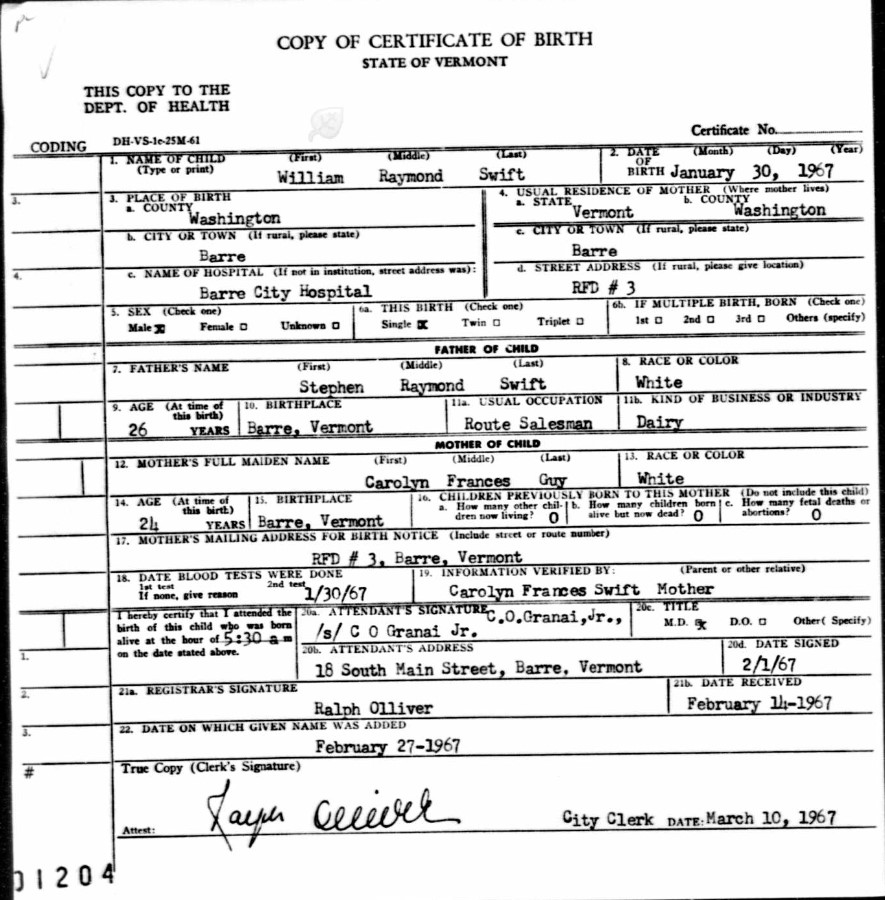 COPY OF CERTIFICATE OF BIRTH
STATE OF VERMONT
THIS COPY TO THE
DEPT. OF HEALTH
Certificate No.
CODING DH-VS-1c-25M-61
1. NAME OF CHILD (First) (Middle) (Last) 2. DATE (Month) (Day) (Year)
(Type or print) William Raymond Swift OF BIRTH January 30, 1967
3. 3. PLACE OF BIRTH 4. USUAL RESIDENCE OF MOTHER (Where mother lives)
a. COUNTY a. STATE b. COUNTY
Washington Vermont Washington
b. CITY OR TOWN (If rural, please state) c. CITY OR TOWN (If rural, please state)
Barre Barre
4. c. NAME OF HOSPITAL (If not in institution, street address was): d. STREET ADDRESS (If rural, please give location)
Barre City Hospital RFD # 3
5. SEX (Check one) 6a. THIS BIRTH (Check one) 6b. IF MULTIPLE BIRTH, BORN (Check one)
Male ☒ Female ☐ Unknown ☐ Single ☒ Twin ☐ Triplet ☐ 1st ☐ 2nd ☐ 3rd ☐ Others (specify)
FATHER OF CHILD
7. FATHER'S NAME (First) (Middle) (Last) 8. RACE OR COLOR
Stephen Raymond Swift White
9. AGE (At time of this birth) 10. BIRTHPLACE 11a. USUAL OCCUPATION 11b. KIND OF BUSINESS OR INDUSTRY
26 YEARS Barre, Vermont Route Salesman Dairy
MOTHER OF CHILD
12. MOTHER'S FULL MAIDEN NAME (First) (Middle) (Last) 13. RACE OR COLOR
Carolyn Frances Guy White
14. AGE (At time of this birth) 15. BIRTHPLACE 16. CHILDREN PREVIOUSLY BORN TO THIS MOTHER (Do not include this child)
a. How many other children now living? 0 b. How many children born alive but now dead? 0 c. How many fetal deaths or abortions? 0
24 YEARS Barre, Vermont
17. MOTHER'S MAILING ADDRESS FOR BIRTH NOTICE (Include street or route number)
RFD # 3, Barre, Vermont
18. DATE BLOOD TESTS WERE DONE 19. INFORMATION VERIFIED BY: (Parent or other relative)
1st test 2nd test
If none, give reason 1/30/67 Carolyn Frances Swift Mother
I hereby certify that I attended the 20a. ATTENDANT'S SIGNATURE C.O.Granai,Jr., 20c. TITLE
birth of this child who was born /s/ C O Granai Jr. M.D. ☒ D.O. ☐ Other( Specify)
alive at the hour of 5:30 a m
on the date stated above. 20b. ATTENDANT'S ADDRESS 20d. DATE SIGNED
1. 18 South Main Street, Barre, Vermont 2/1/67
2. 21a. REGISTRAR'S SIGNATURE 21b. DATE RECEIVED
Ralph Olliver February 14-1967
3. 22. DATE ON WHICH GIVEN NAME WAS ADDED
February 27-1967
# True Copy (Clerk's Signature)
Attest: City Clerk DATE: March 10, 1967
01204